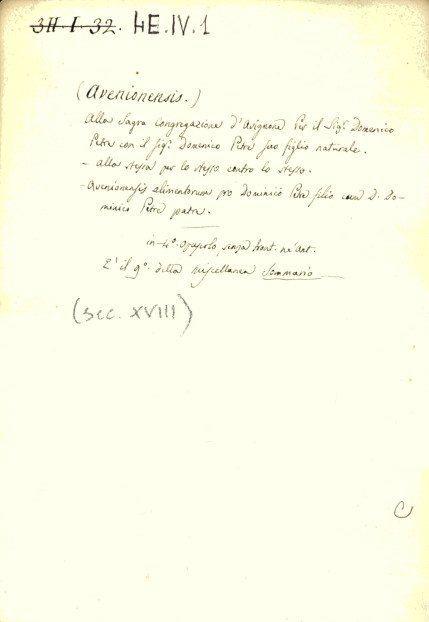 3H-I-32. HE.IV.1
(Avenionensis.)
Alla Sagra Congregazione d'Avignone Per il Sigr. Domenico
Petrè con il Sigr. Domenico Petrè suo figlio naturale.
- alla stessa per lo stesso contro lo stesso.
- Avenionensis alimentorum pro Dominico Petrè filio cum D. Do-
minico Petrè patre.
in-4°. opuscolo, senza front. nè ant.
E' il 9°. della miscellanea Sommario
(sec. XVIII)
C